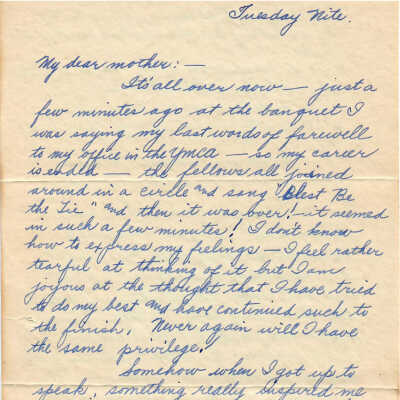 Tuesday Nite.
My dear mother: —
It's all over now — just a
few minutes ago at the banquet I
was saying my last words of farewell
to my office in the YMCA — so my career
is ended — the fellows all joined
around in a circle and sang "Blest Be
the Tie" and then it was over! — it seemed
in such a few minutes! I don't know
how to express my feelings — I feel rather
tearful at thinking of it but I am
joyous at the thought that I have tried
to do my best and have continued such to
the finish. Never again will I have
the same privilege!
Somehow when I got up to
speak, something really inspired me